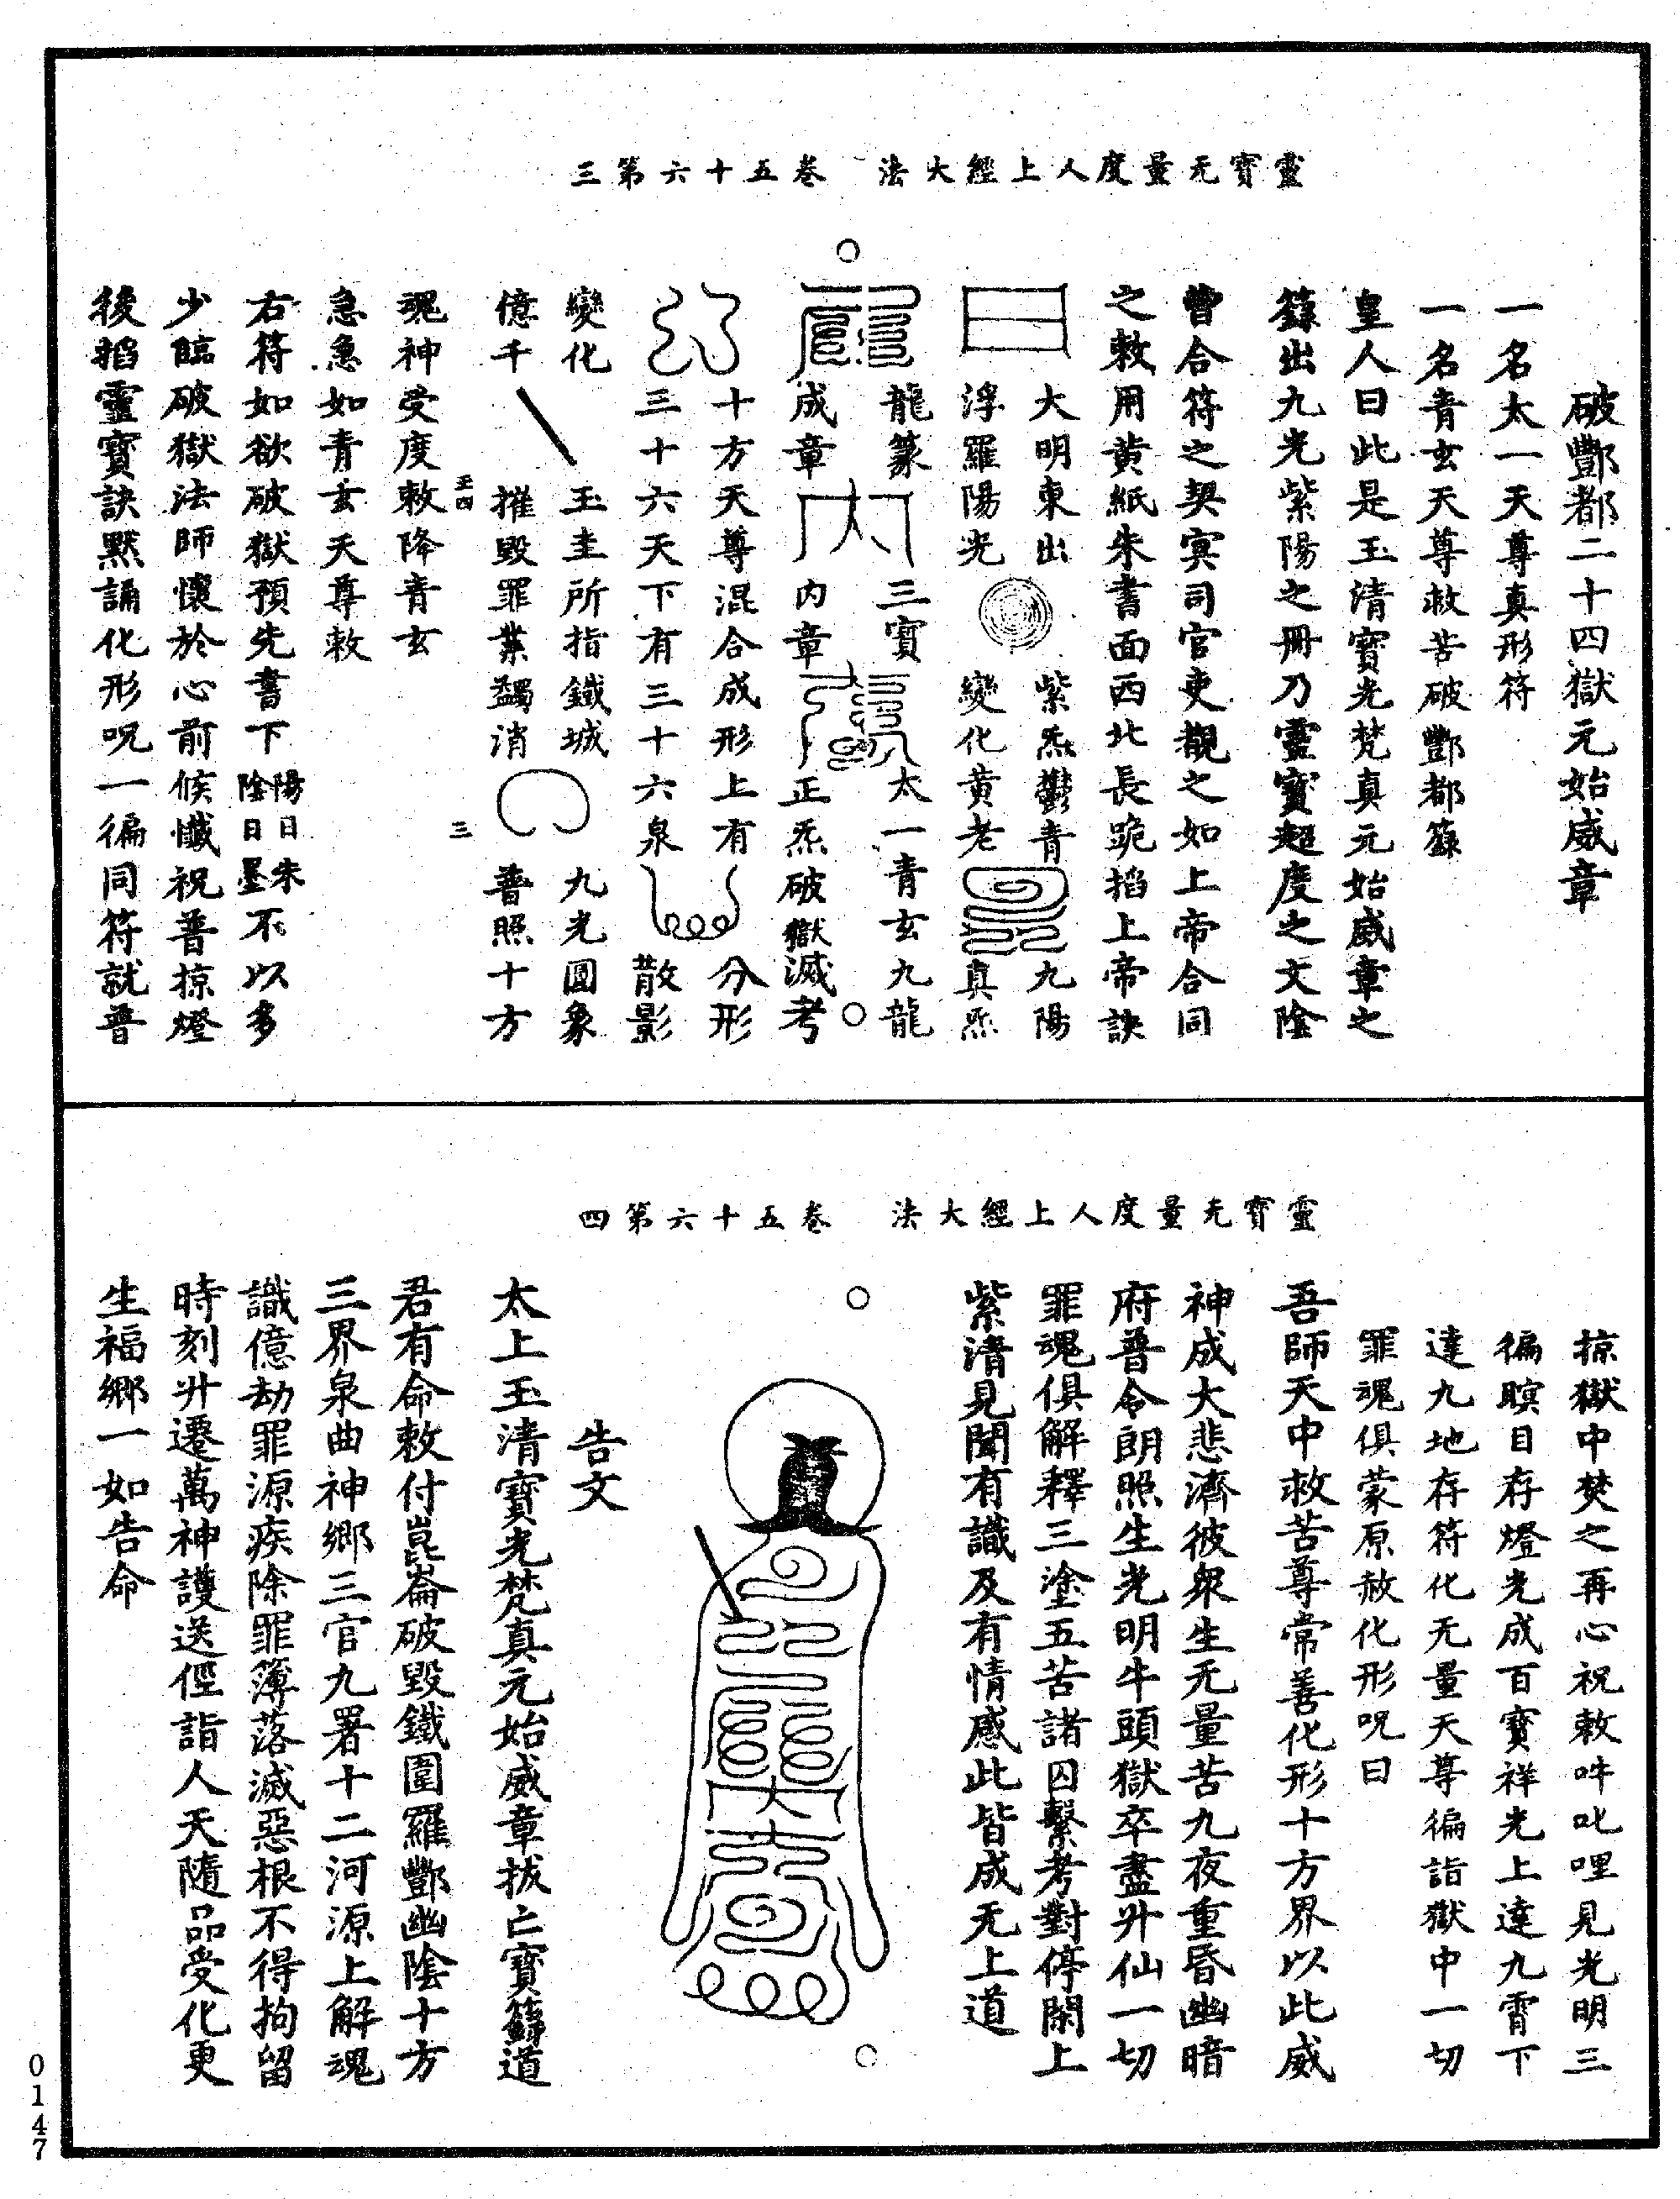 靈寶无量度人上經大法　卷五十六第三
破酆都二十四獄元始威章
一名太一天尊真形符
一名青玄天尊救苦破酆都籙
皇人曰此是玉清寶光梵真元始威章之
籙出九光紫陽之冊乃靈寶超度之文陰
曹合符之契冥司官吏覩之如上帝合同
之敕用黃紙朱書面西北長跪掐上帝訣
大明東出
浮羅陽光
紫炁鬱青
變化黃老
九陽
真炁
龍篆
成章
三寶
內章
太一青玄九龍
正炁破獄滅考
十方天尊混合成形上有
三十六天下有三十六泉
分形
散影
變化
億千
玉圭所指鐵城
摧毀罪業蠲消
九光圓象
普照十方
魂神受度敕降青玄
王四
三
急急如青玄天尊敕
右符如欲破獄預先書下陽日朱陰日墨不以多
少臨破獄法師懷於心前候懺祝普掠燈
後掐靈寶訣默誦化形呪一徧同符就普
靈寶无量度人上經大法　卷五十六第四
掠獄中焚之再心祝敕吽叱哩見光明三
徧瞑目存燈光成百寶祥光上達九霄下
達九地存符化无量天尊徧詣獄中一切
罪魂俱蒙原赦化形呪曰
吾師天中救苦尊常善化形十方界以此威
神成大悲濟彼眾生无量苦九夜重昏幽暗
府普令朗照生光明牛頭獄卒盡升仙一切
罪魂俱解釋三塗五苦諸囚繫考對停閑上
紫清見聞有識及有情感此皆成无上道
告文
太上玉清寶光梵真元始威章拔亡寶籙道
君有命敕付崑崙破毀鐵圍羅酆幽陰十方
三界泉曲神鄉三官九署十二河源上解魂
識億劫罪源疾除罪簿落滅惡根不得拘留
時刻升遷萬神護送俓詣人天隨品受化更
生福鄉一如告命
0147